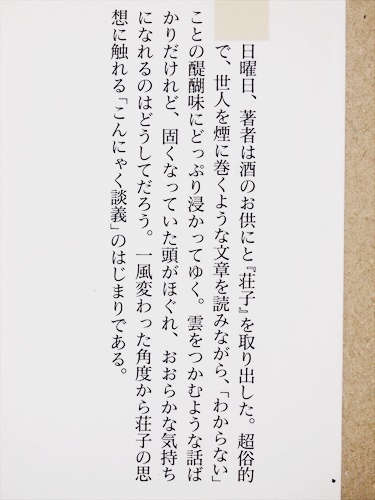 日曜日、著者は酒のお供にと『荘子』を取り出した。超俗的
で、世人を煙に巻くような文章を読みながら、「わからない」
ことの醍醐味にどっぷり浸かってゆく。雲をつかむような話ば
かりだけれど、固くなっていた頭がほぐれ、おおらかな気持ち
になれるのはどうしてだろう。一風変わった角度から荘子の思
想に触れる「こんにゃく談義」のはじまりである。